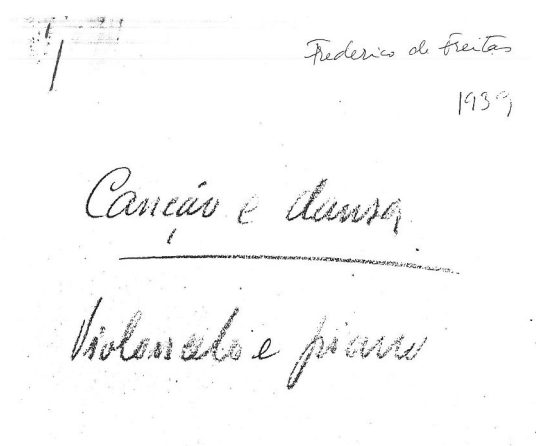 Frederico de Freitas
1939
Canção e dansa
Violoncelo e piano